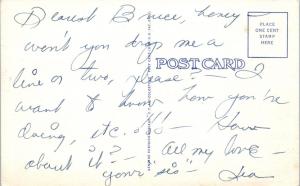 Dearest Bruce, honey
won't you drop me a
line or two, please? I
want to know how you're
doing, etc.!!! - How
about it? - All my love -
your "sis" -
POST CARD
PLACE
ONE CENT
STAMP
HERE